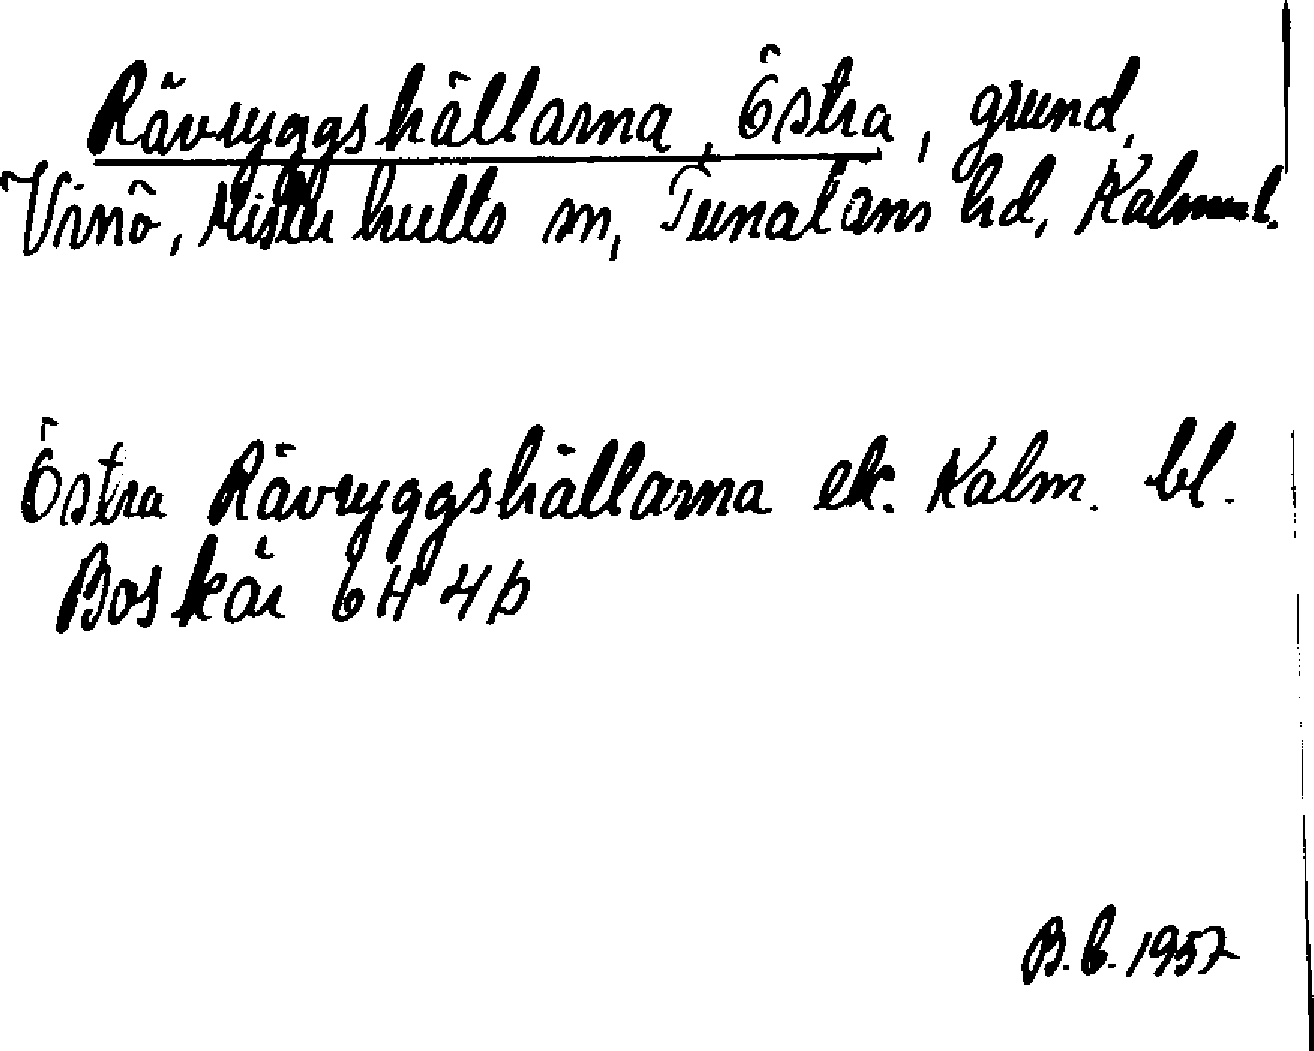 Rävryggshällarna, Östra, grund,
Vinö, Misterhults sn, Tunaläns hd, Kalmar l.
Östra Rävryggshällarna ek. Kalm. bl.
Boskär 6H 4b
B.b. 1957